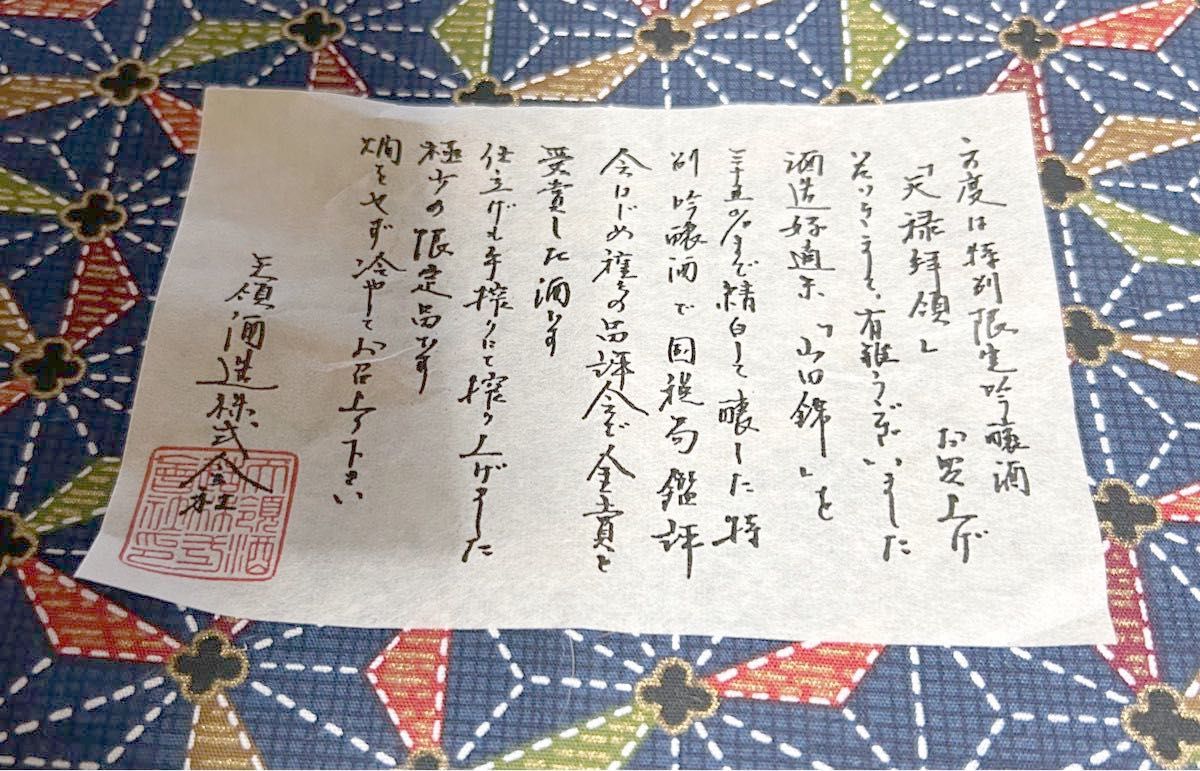 方度は特別限定吟醸酒
「天禄拝領」お買上げ
下さいまして、有難うございました
酒造好適米「山田錦」を
三十五%まで精白して醸した特
別吟醸酒で国税局鑑評
会はじめ種々の品評会で金賞を
受賞した酒です
仕立げも手搾りにて搾り上げました
極少の限定品です
燗をせず冷やでお召上り下さい
天領酒造株式会社
天領酒造株式会社印